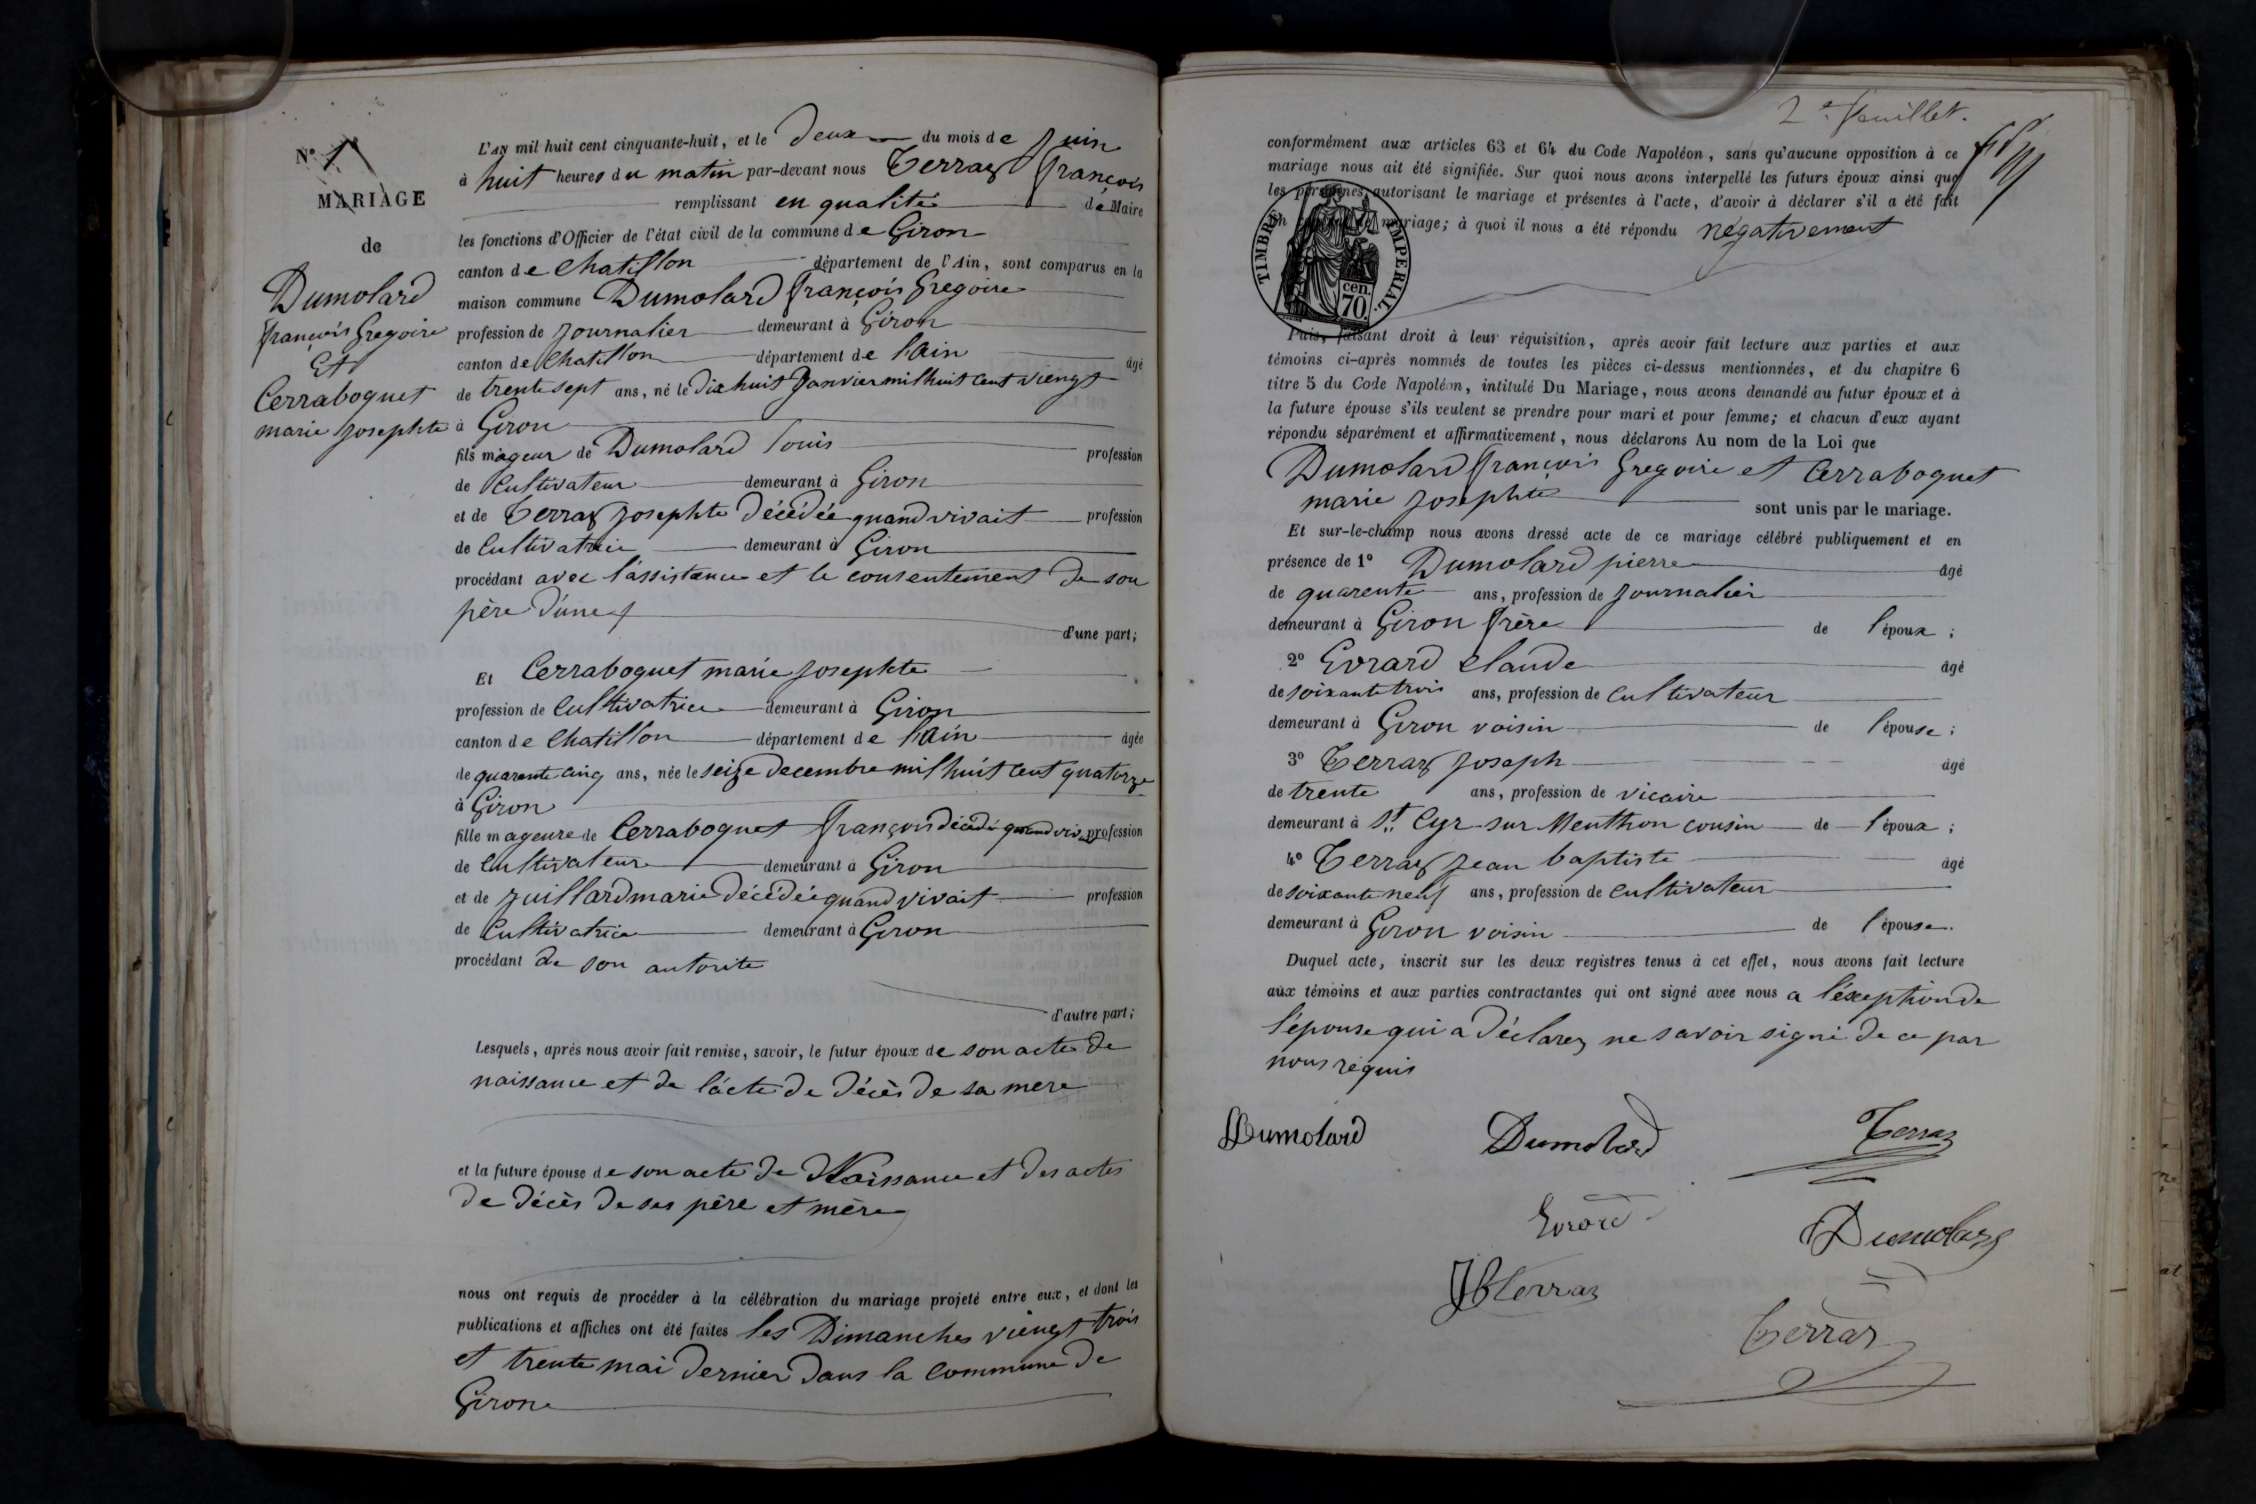 N° 1
MARIAGE
de
Dumolard
françois Gregoire
Et
Cerraboquet
marie josephte
L'AN mil huit cent cinquante-huit, et le Deux du mois de Juin
à huit heures du matin par-devant nous Terraz françois
remplissant en qualité de Maire
les fonctions d'Officier de l'état civil de la commune de Giron
canton de Chatillon département de l'Ain, sont comparus en la
maison commune Dumolard françois Gregoire
profession de journalier demeurant à Giron
canton de Chatillon département de l'Ain âgé
de trente sept ans, né le Dix huit Janvier mil huit cent viengt
à Giron
fils mageur de Dumolard Louis profession
de Cultivateur demeurant à Giron
et de Terraz josephte Décédée quand vivait profession
de Cultivatrice demeurant à Giron
procédant avec l'assistance et le consentement de son
père d'une
d'une part;
Et Cerraboquet marie josephte
profession de Cultivatrice demeurant à Giron
canton de Chatillon département de l'Ain âgée
de quarente cinq ans, née le seize decembre mil huit cent quatorze
à Giron
fille mageure de Cerraboquet françois décédé quand viv. profession
de Cultivateur demeurant à Giron
et de juillard marie Décédée quand vivait profession
de Cultivatrice demeurant à Giron
procédant de son autorite
d'autre part;
Lesquels, après nous avoir fait remise, savoir, le futur époux de son acte de
naissance et de l'acte de décès de sa mere
et la future épouse de son acte de Naissance et des actes
de décès de ses père et mère
nous ont requis de procéder à la célébration du mariage projeté entre eux, et dont les
publications et affiches ont été faites les Dimanches viengt trois
et trente mai dernier dans la commune de
Giron
2e feuillet.
conformément aux articles 63 et 64 du Code Napoléon, sans qu'aucune opposition à ce
mariage nous ait été signifiée. Sur quoi nous avons interpellé les futurs époux ainsi que
les personnes autorisant le mariage et présentes à l'acte, d'avoir à déclarer s'il a été fait
mariage; à quoi il nous a été répondu négativement
TIMBRE IMPERIAL.
cen.
70.
Puis, faisant droit à leur réquisition, après avoir fait lecture aux parties et aux
témoins ci-après nommés de toutes les pièces ci-dessus mentionnées, et du chapitre 6
titre 5 du Code Napoléon, intitulé Du Mariage, nous avons demandé au futur époux et à
la future épouse s'ils veulent se prendre pour mari et pour femme; et chacun d'eux ayant
répondu séparément et affirmativement, nous déclarons Au nom de la Loi que
Dumolard françois Gregoire et Cerraboquet
marie josephte sont unis par le mariage.
Et sur-le-champ nous avons dressé acte de ce mariage célébré publiquement et en
présence de 1° Dumolard pierre âgé
de quarente ans, profession de journalier
demeurant à Giron frère de l'époux;
2° Evrard Claude âgé
de soixante trois ans, profession de Cultivateur
demeurant à Giron voisin de l'épouse;
3° Terraz joseph âgé
de trente ans, profession de vicaire
demeurant à St. Cyr sur Menthon cousin de l'époux;
4° Terraz jean baptiste âgé
de soixante neuf ans, profession de Cultivateur
demeurant à Giron voisin de l'épouse.
Duquel acte, inscrit sur les deux registres tenus à cet effet, nous avons fait lecture
aux témoins et aux parties contractantes qui ont signé avec nous a l'éxeption de
l'épouse qui a Déclarez ne savoir signé de ce par
nous réquis
Dumolard Dumolard Terraz
Evrard
Dumolard
JBterraz
Terraz